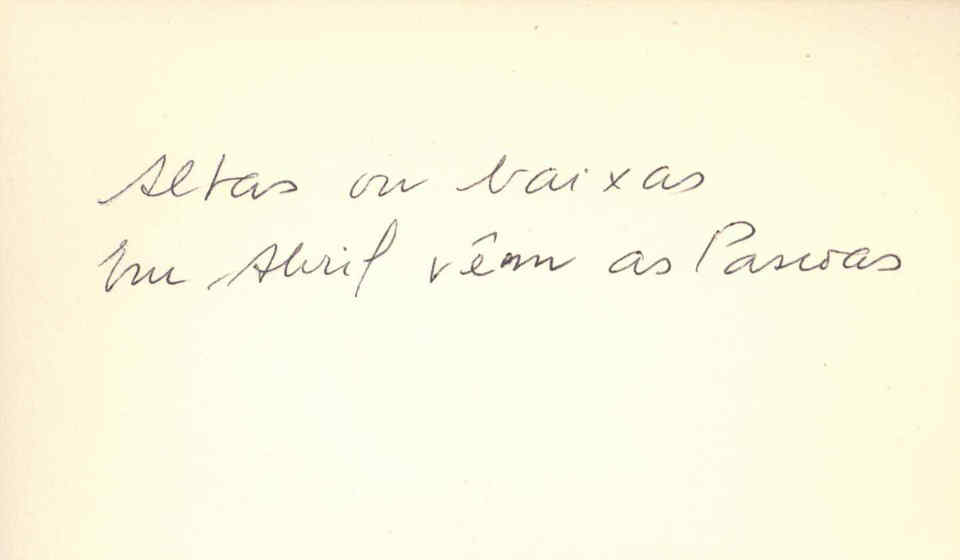 Altas ou baixas
Em Abril vêm as Pascoas